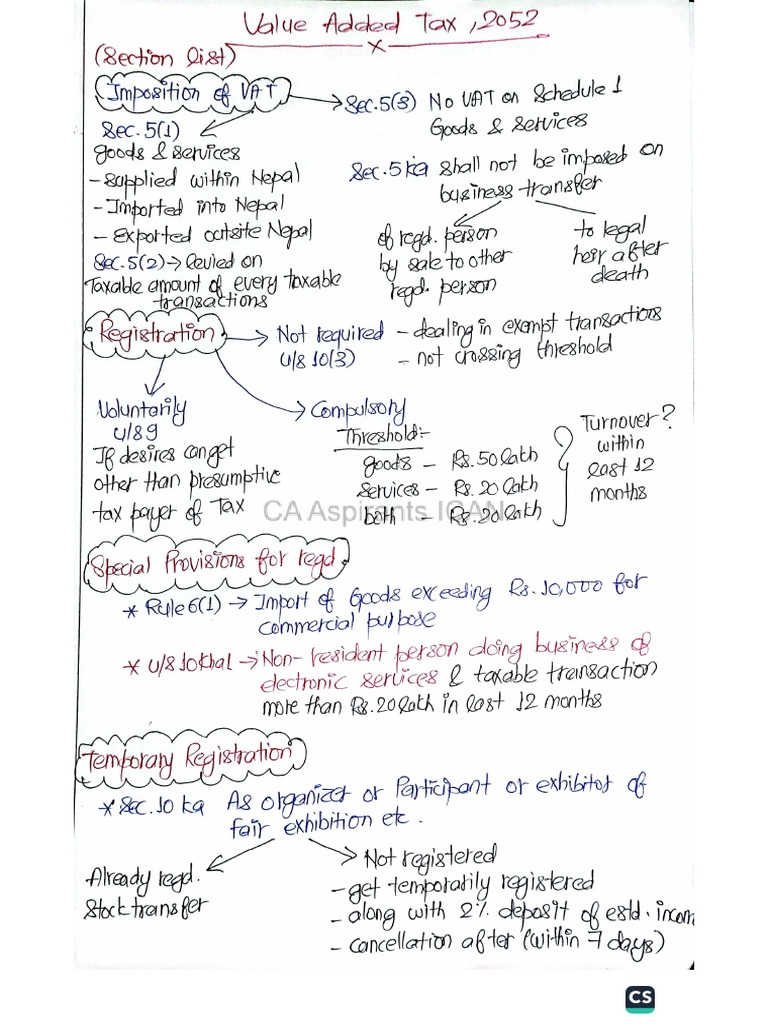 Value Added Tax, 2052
x
(Section list)
Imposition of VAT
Sec. 5(1)
goods & services
- supplied within Nepal
- Imported into Nepal
- Exported outsite Nepal
Sec. 5(2) → levied on
Taxable amount of every taxable
transactions
Sec. 5(3) No VAT on Schedule 1
Goods & services
Sec. 5 ka shall not be imposed on
business transfer
of regd. person
by sale to other
regd. person
to legal
heir after
death
Registration
Not required
u/s 10(3)
- dealing in exempt transactions
- not crossing threshold
Voluntarily
u/s 9
If desires can get
other than presumptive
tax payer of Tax
Compulsory
Threshold:-
goods - Rs. 50 lakh
services - Rs. 20 lakh
both - Rs. 20 lakh
Turnover?
within
last 12
months
CA Aspirants ICAN
Special Provisions for regd.
* Rule 6(1) → Import of Goods exceeding Rs. 10,000 for
commercial purpose
* u/s 10kha1 → Non-resident person doing business of
electronic services & taxable transaction
more than Rs. 20 lakh in last 12 months
Temporary Registration
* Sec. 10 ka As organizer or Participant or exhibitor of
fair exhibition etc.
Already regd.
Stock transfer
Not registered
- get temporarily registered
- along with 2% deposit of estd. incom
- cancellation after (within 7 days)
CS